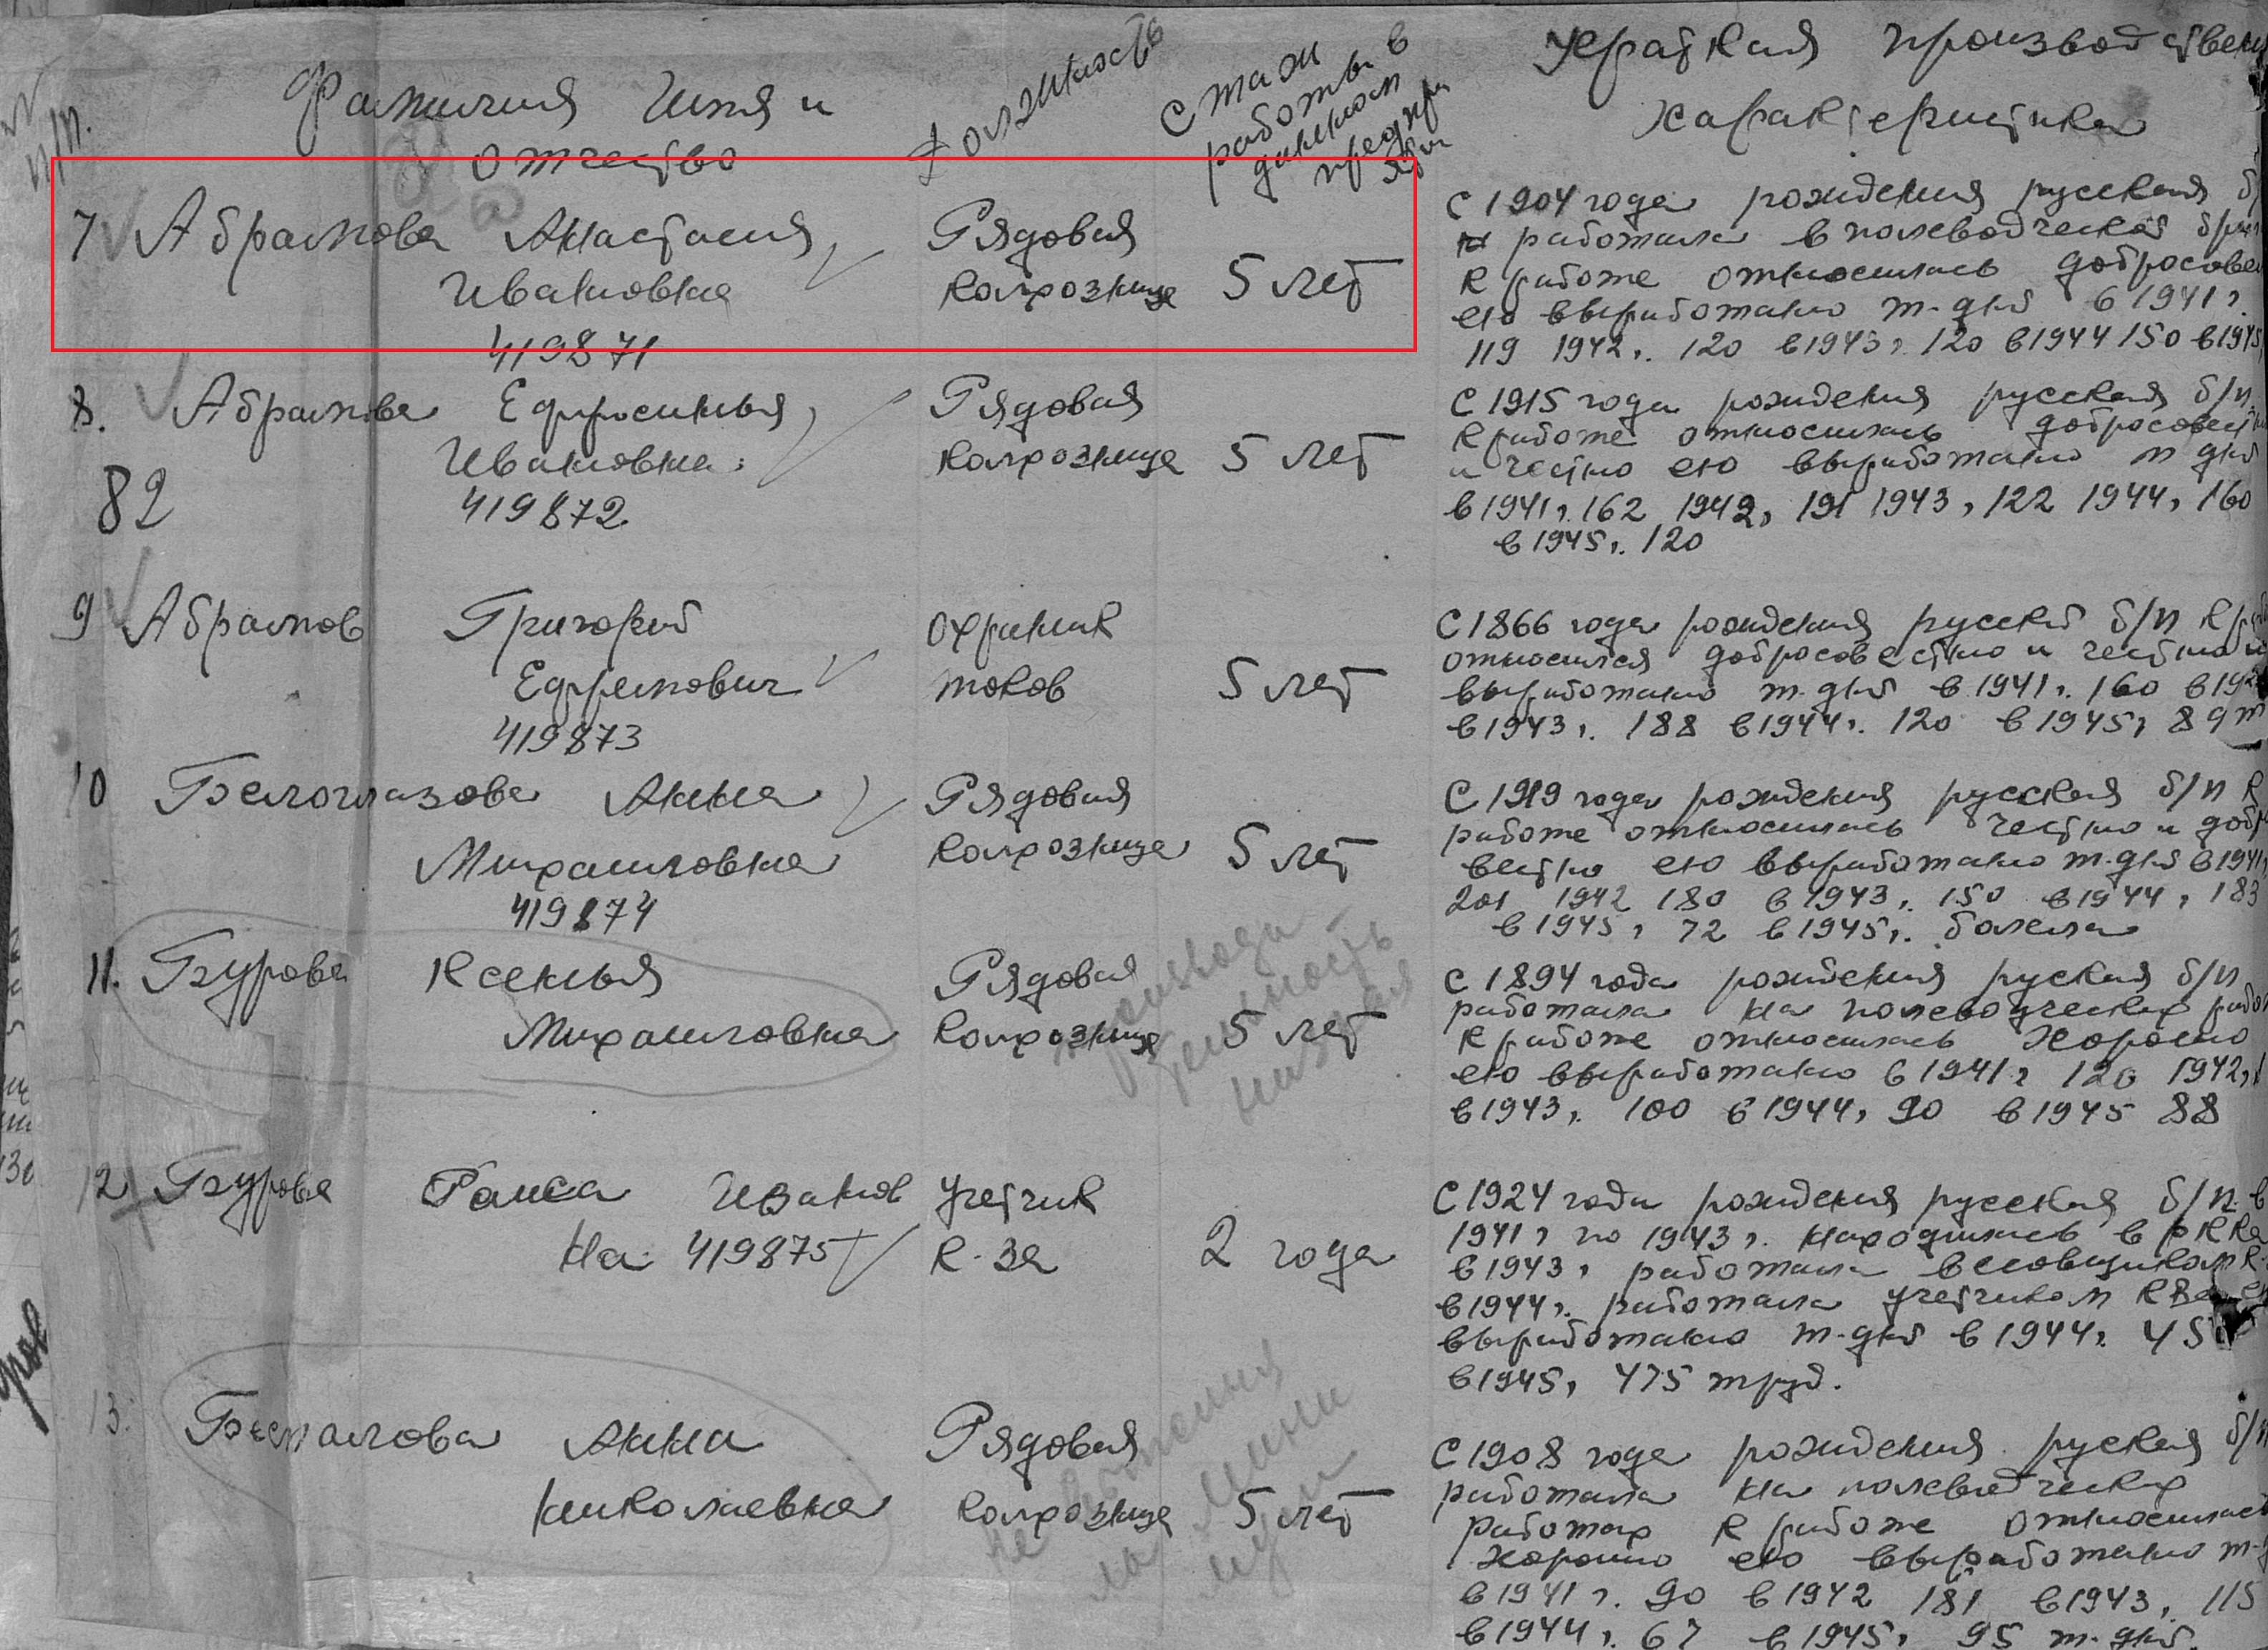 п/п.
Фамилия Имя и
отчество
Должность
Стаж
работы в
данном
предпри
ятии
Краткая производствен
характеристика
7 Абрамова Анастасия
Ивановна
419871
Рядовая
колхозница
5 лет
С 1904 года рождения русская б/
работала в полеводческой бриг
к работе относилась добросовес
ею выработано т-дней в 1941 г.
119 1942 г. 120 в 1943 г. 120 в 1944 150 в 1945
8. Абрамова Ефросинья
Ивановна
82
419872
Рядовая
колхозница
5 лет
С 1915 года рождения русская б/п
к работе относилась добросовест
и честно ею выработано т дней
в 1941 г. 162 1942 г 191 1943 г 122 1944 г 160
в 1945 г. 120
9 Абрамов Григорий
Ефремович
419873
охраник
токов
5 лет
С 1866 года рождения русский б/п к р
относился добросовестно и честно
выработано т-дней в 1941 г. 160 в 1942
в 1943 г. 188 в 1944 г. 120 в 1945 г 89 т
10 Белоглазова Анна
Михайловна
419874
Рядовая
колхозница
5 лет
С 1919 года рождения русская б/п к
работе относилась честно и добро
вестно ею выработано т-дней в 1941 г
201 1942 180 в 1943 г. 150 в 1944 г 183
в 1945 г 72 в 1945 г. болела
11. Бурова Ксенья
Михайловна
Рядовая
колхозница
5 лет
производи
тельность
низкая
С 1894 года рождения руская б/п
работала на полеводческих работ
к работе относилась хорошо
ею выработано в 1941 г 120 1942 г
в 1943 г. 100 в 1944 г 90 в 1945 88
12 Бурова Раиса Иванов
на 419875
Учетчик
к-за
2 года
С 1924 года рождения русская б/п. в
1941 г по 1943 г. находилась в РККА
в 1943 г работала весовщиком к-
в 1944 г. работала учетчиком к
выработано т-дней в 1944 г. 45
в 1945 г 475 труд.
13. Беспалова Анна
Николаевна
Рядовая
колхозница
5 лет
мини
мум
С 1908 года рождения руская б/п
работала на полеводческих
работах к работе относилас
хорошо ею выработано т-д
в 1941 г. 90 в 1942 181 в 1943 г. 115
в 1944 г. 67 в 1945 г 95 т-дней